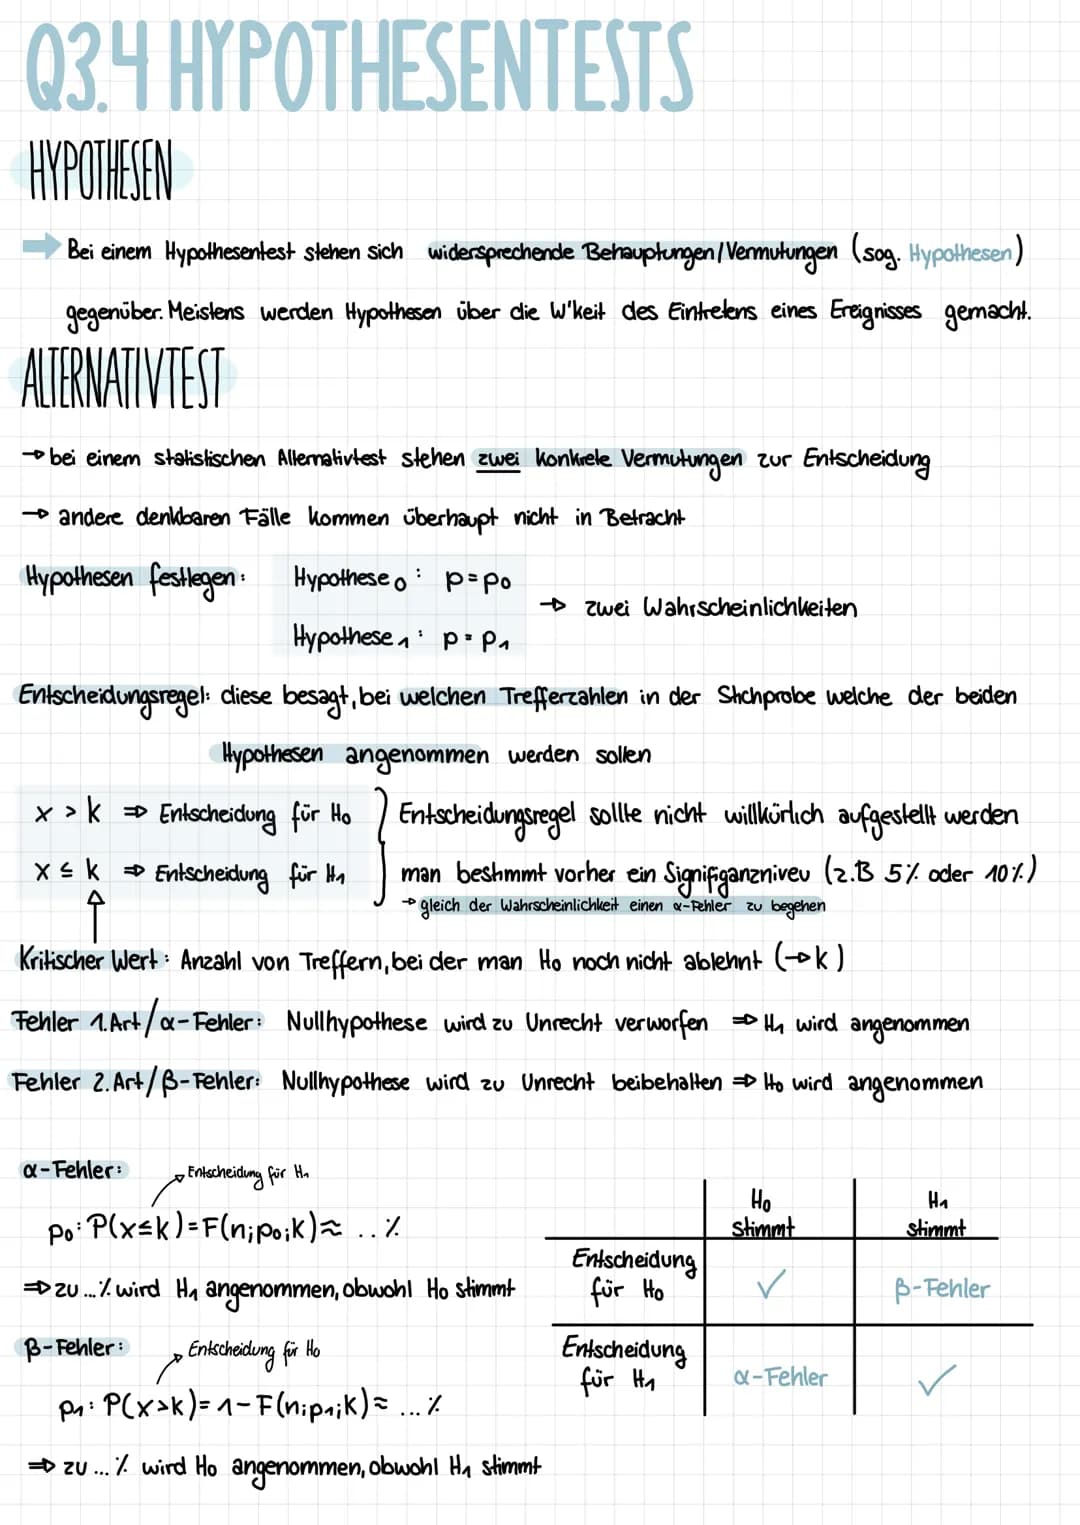 Q3.4 HYPOTHESENTESTS
HYPOTHESEN
→ Bei einem Hypothesentest stehen sich widersprechende Behauptungen/Vermutungen (sog. Hypothesen)
gegenüber. Meistens werden Hypothesen über die W'keit des Eintretens eines Ereignisses gemacht.
ALTERNATIVTEST
→ bei einem statistischen Alternativtest stehen zwei konkrete Vermutungen zur Entscheidung
→ andere denkbaren Fälle kommen überhaupt nicht in Betracht
Hypothesen festlegen: Hypothese₀: p=p₀
→ zwei Wahrscheinlichkeiten
Hypothese₁: p=p₁
Entscheidungsregel: diese besagt, bei welchen Trefferzahlen in der Stichprobe welche der beiden
Hypothesen angenommen werden sollen
x > k ⇒ Entscheidung für H₀ } Entscheidungsregel sollte nicht willkürlich aufgestellt werden
x ≤ k ⇒ Entscheidung für H₁ man bestimmt vorher ein Signifiganzniveu (z.B 5% oder 10%)
→ gleich der Wahrscheinlichkeit einen α-Fehler zu begehen
Kritischer Wert: Anzahl von Treffern, bei der man H₀ noch nicht ablehnt (→k)
Fehler 1.Art/α-Fehler: Nullhypothese wird zu Unrecht verworfen ⇒ H₁ wird angenommen
Fehler 2.Art/β-Fehler: Nullhypothese wird zu Unrecht beibehalten ⇒ H₀ wird angenommen
α-Fehler:
Entscheidung für H₁
p₀: P(x≤k)=F(n;p₀;k)≈ ..%
⇒ zu ...% wird H₁ angenommen, obwohl H₀ stimmt
β-Fehler:
Entscheidung für H₀
p₁: P(x>k)=1-F(n;p₁;k)≈ ...%
⇒ zu ...% wird H₀ angenommen, obwohl H₁ stimmt
H₀ H₁
stimmt stimmt
Entscheidung
für H₀ ✓ β-Fehler
Entscheidung
für H₁ α-Fehler ✓